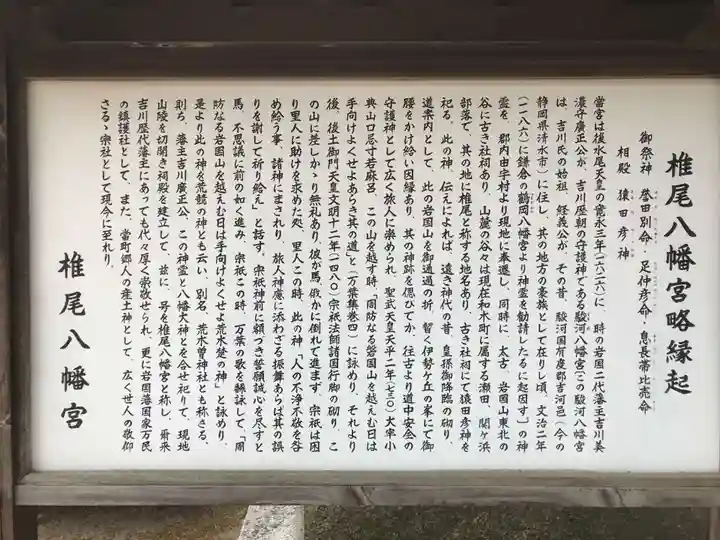 椎尾八幡宮略縁起
御祭神 誉田別命・足仲彦命・息長帯比売命
相殿 猿田彦神
當宮は後水尾天皇の寛永三年(一六二六)に 時の岩国二代藩主吉川美
濃守廣正公が、吉川歴朝の守護神である駿河八幡宮[この駿河八幡宮
は、吉川氏の始祖、経義公が、その昔、駿河国有度郡吉河邑(今の
静岡県清水市)に住し、其の地方の豪族として在りし頃、文治二年
(一一八六)に鎌倉の鶴岡八幡宮より神霊を勧請したるに起因す]の神
霊を、郡内由宇村より現地に奉遷し、同時に、太古、岩国山東北の
谷に古き祠あり、山麓の谷々は現在和木町に属する瀬田、関ヶ浜
部落で、其の地に椎尾と称する地名あり、古き社祠にて猿田彦神を
祀る。此の神、伝えによれば、遠き神代の昔、皇孫御降臨の砌り、
道案内として、此の岩国山を御通過の折、暫く伊勢ヶ丘の峯にて御
腰をかけ給い因縁あり、其の神跡を偲びてか、往古より道中安全の
守護神として広く旅人に崇められ、聖武天皇天平二年(七三〇)大宰小
典山口忌寸若麻呂、この山を越す時、「周防なる磐国山を越えむ日は
手向けよくせよあらき其の道」と(万葉集巻四)に詠めり、それより
後、後土御門天皇文明十二年(一四八〇)宗祇法師諸国行脚の砌り、こ
の山に差しかゝり無礼あり、彼が馬俄かに倒れて進まず、宗祇は因
り里人に助けを求めた処、里人この時、此の神「人の不浄不敬を咎
め給う事、諸神にまされり、旅人神慮に添わざる振舞あらば其の誤
りを謝して祈り給え」と話す。宗祇神前に額づき誓願誠心を尽すと
馬、不思議に前の如く進み、宗祇この時、万葉の歌を飜詠して、「周
防なる岩国山を越えむ日は手向けよくせよ荒木埜の神」と詠めり、
是より此の神を荒競の神とも云い、別名、荒木曽神社とも称さる。
則ち、藩主吉川廣正公、この神霊と八幡大神とを合せ祀りて、現地
山陵を切開き祠殿を建立して、茲に、号を椎尾八幡宮と称し、爾来
吉川歴代藩主にあっても代々厚く崇敬せられ、更に岩国藩国家万民
の鎮護社として、また、當町郷人の産土神として、広く世人の敬仰
さるゝ宗社として現今に至れり。
椎尾八幡宮